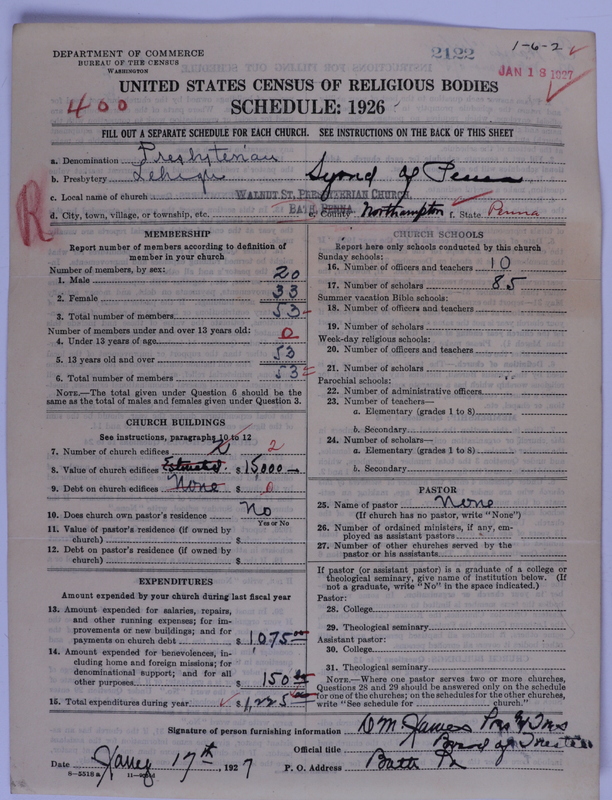 DEPARTMENT OF COMMERCE
BUREAU OF THE CENSUS
WASHINGTON
2122
1-6-2 ✓
JAN 18 1927
UNITED STATES CENSUS OF RELIGIOUS BODIES
400
SCHEDULE: 1926
FILL OUT A SEPARATE SCHEDULE FOR EACH CHURCH. SEE INSTRUCTIONS ON THE BACK OF THIS SHEET
a. Denomination Presbyterian
b. Presbytery Lehigh Synod of Penna
c. Local name of church WALNUT ST. PRESBYTERIAN CHURCH,
d. City, town, village, or township, etc. BATH, PENNA. e. County Northampton f. State Penna
R
MEMBERSHIP
Report number of members according to definition of member in your church
Number of members, by sex:
1. Male 20
2. Female 33
3. Total number of members 53
Number of members under and over 13 years old:
4. Under 13 years of age 0
5. 13 years old and over 53
6. Total number of members 53
NOTE.—The total given under Question 6 should be the same as the total of males and females given under Question 3.
CHURCH BUILDINGS
See instructions, paragraphs 10 to 12
7. Number of church edifices 2 2
8. Value of church edifices Estimated $ 15000
9. Debt on church edifices None $ 0
10. Does church own pastor's residence No
Yes or No
11. Value of pastor's residence (if owned by church) $
12. Debt on pastor's residence (if owned by church) $
EXPENDITURES
Amount expended by your church during last fiscal year
13. Amount expended for salaries, repairs, and other running expenses; for improvements or new buildings; and for payments on church debt $ 1075 00
14. Amount expended for benevolences, including home and foreign missions; for denominational support; and for all other purposes $ 150 00
15. Total expenditures during year $ 1,225 00
CHURCH SCHOOLS
Report here only schools conducted by this church
Sunday schools:
16. Number of officers and teachers 10
17. Number of scholars 85
Summer vacation Bible schools:
18. Number of officers and teachers
19. Number of scholars
Week-day religious schools:
20. Number of officers and teachers
21. Number of scholars
Parochial schools:
22. Number of administrative officers
23. Number of teachers—
a. Elementary (grades 1 to 8)
b. Secondary
24. Number of scholars—
a. Elementary (grades 1 to 8)
b. Secondary
PASTOR
25. Name of pastor None
(If church has no pastor, write "None")
26. Number of ordained ministers, if any, employed as assistant pastors
27. Number of other churches served by the pastor or his assistants
If pastor (or assistant pastor) is a graduate of a college or theological seminary, give name of institution below. (If not a graduate, write "No" in the space indicated.)
Pastor:
28. College
29. Theological seminary
Assistant pastor:
30. College
31. Theological seminary
NOTE.—Where one pastor serves two or more churches, Questions 28 and 29 should be answered only on the schedule for one of the churches; on the schedules for the other churches, write "See schedule for church."
Signature of person furnishing information
Official title Board of Trustees
Date Janry 17th, 1927 P. O. Address Bath Pa
8—5518 a